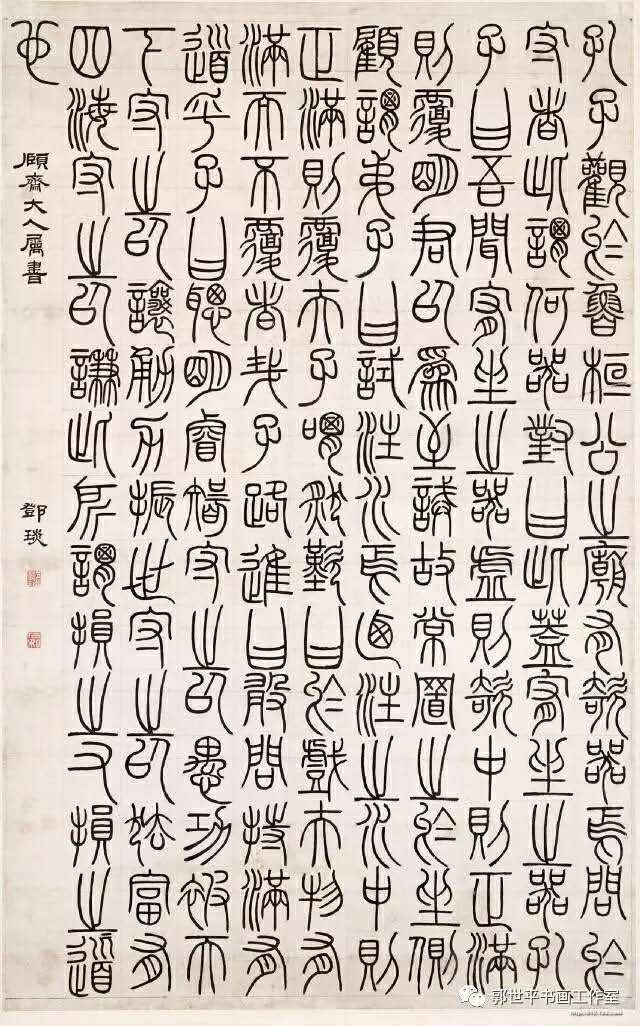 孔子觀於魯桓公之廟有欹器焉問於
守者此謂何器對曰此蓋宥坐之器孔
子曰吾聞宥坐之器虛則欹中則正滿
則覆明君以爲至誠故常置之於坐側
顧謂弟子曰試注水焉迺注之水中則
正滿則覆夫子喟然歎曰於戲夫物有
滿而不覆者哉子路進曰敢問持滿有
道乎子曰聰明睿智守之以愚功被天
下守之以讓勇力振世守之以怯富有
四海守之以謙此所謂損之又損之道
也
頤齋大人屬書
鄧琰
郭世平书画工作室